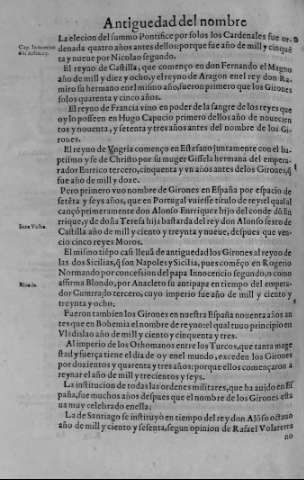 Antiguedad del nombre
La elecion del summo Pontifice por solos los Cardenales fue or-
denada quatro años antes dellos: porque fue año de mill y cinquē
ta y nueue por Nicolao segundo.
El reyno de Castilla, que começo en don Fernando el Magno
año de mill y diez y ocho, y el reyno de Aragon en el rey don Ra-
miro su hermano en el mismo año, fueron primero que los Girones
solos quarenta y cinco años.
El reyno de Francia vino en poder de la sangre de los reyes que
oy lo posseen en Hugo Capucio primero dellos año de nouecien
tos y nouenta, y setenta y tres años antes del nombre de los Gi-
rones.
El reyno de Vngria començo en Estefano juntamente con el ba-
ptismo y fe de Christo por su muger Gissela hermana del empera-
dor Enrrico tercero, cinquenta y vn años antes de los Girones, q̃
fue año de mill y doze.
Pero primero vuo nombre de Girones en España por espacio de
setēta y seys años, que en Portugal vuiesse titulo de rey: el qual al
canço primeramente don Alonso Enrriquez hijo del conde dō En
rrique, y de doña Teresa hija bastarda del rey don Alonso sexto de
Castilla año de mill y ciento y treynta y nueue, despues que ven-
cio cinco reyes Moros.
El mismo tiēpo casi lleuā de antiguedad los Girones al reyno de
las dos Sicilias, q̃ son Napoles y Sicilia, pues començo en Rogerio
Normando por concession del papa Innocencio segundo, o como
affirma Blondo, por Anacleto su antipapa en tiempo del empera-
dor tercero, cuyo imperio fue año de mill y ciento y
treynta y ocho.
Fueron tambien los Girones en nuestra España nouenta años an
tes que en Bohemia el nombre de reyno: el qual tuuo principio en
Vladislao año de mill y ciento y cinquenta y tres.
Al imperio de los Othomanos entre los Turcos, que tanta mage
stad y fuerça tiene el dia de oy en el mundo, exceden los Girones
por dozientos y quarenta y tres años: porque ellos començaron a
reynar el año de mill y trecientos y seys.
La institucion de todas las ordenes militares, que ha auido en Es
paña, fue muchos años despues que el nombre de los Girones esta
ua muy celebrado en ella.
La de Santiago se instituyò en tiempo del rey don Alōso octauo
año de mill y ciento y sesenta, segun opinion de Rafael Volaterra
no
Blondo.